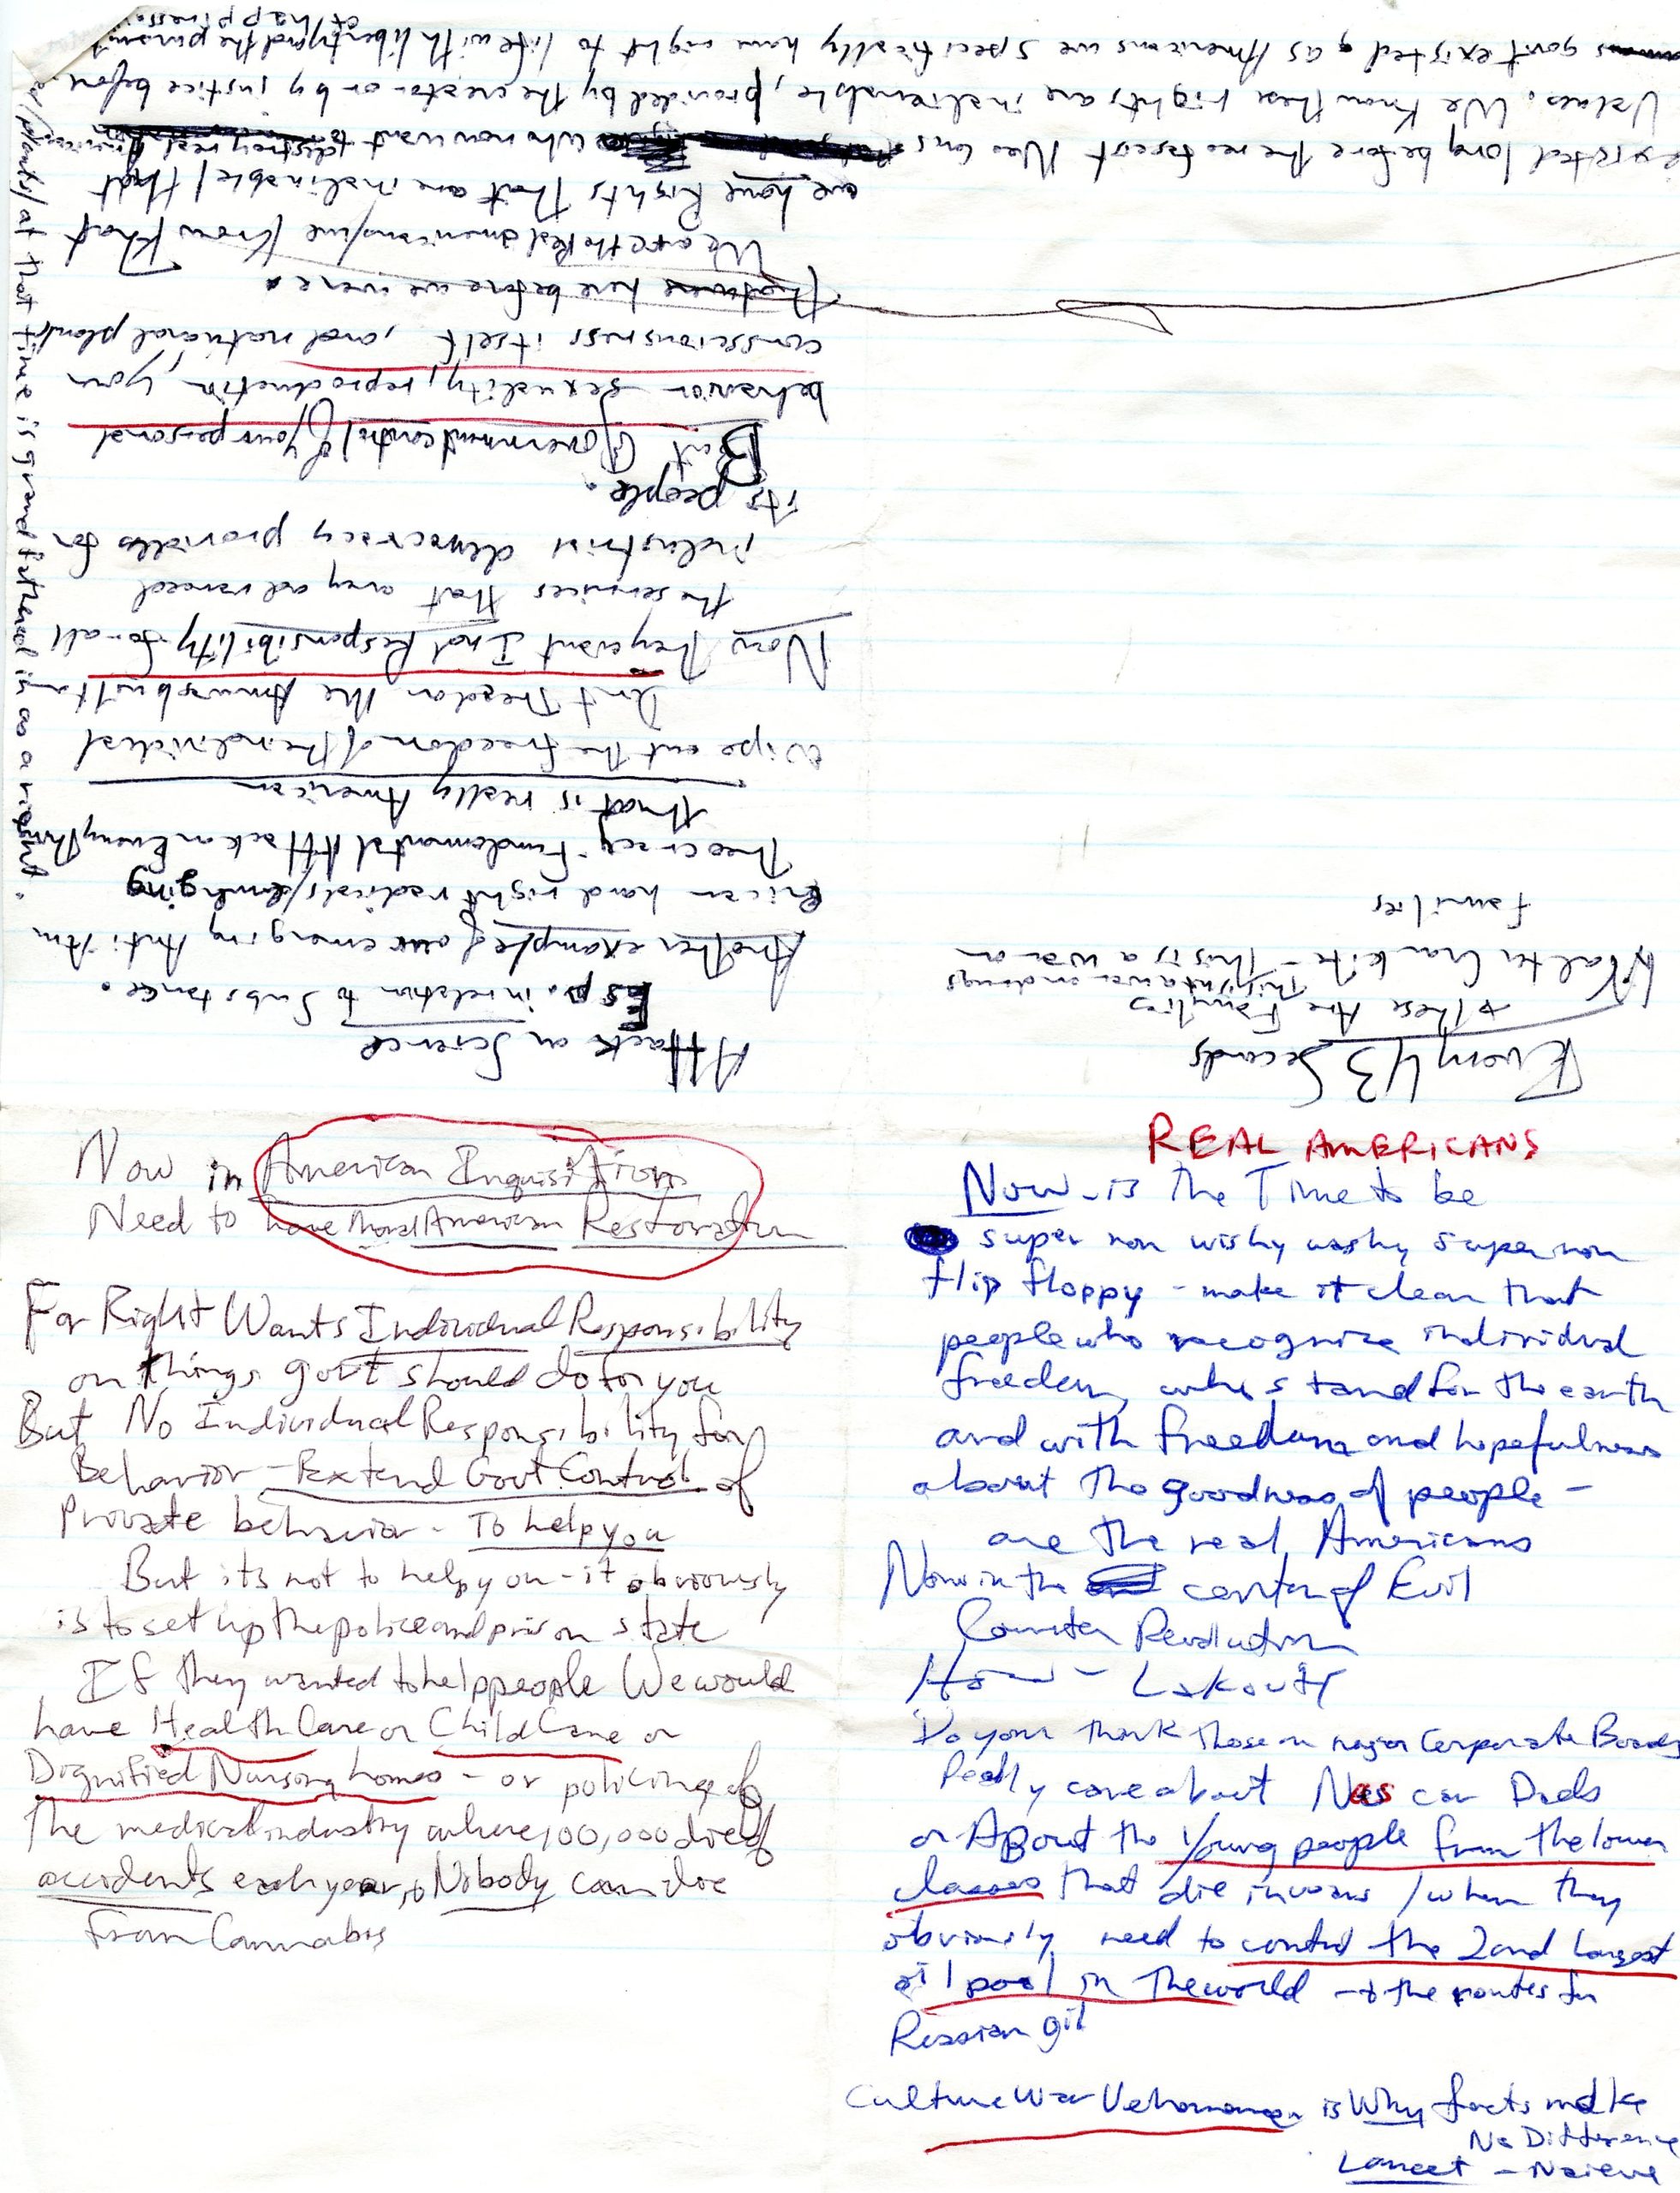 Now in American Inquisition
Need to have American Restoration
Far Right Wants Individual Responsibility
on things govt should do for you
But No Individual Responsibility for
Behavior - Extend Govt Control of
Private behavior - To help you
But its not to help you - it obviously
is to set up the police and prison state
If they wanted to help people We would
have Health Care or Child Care or
Dignified Nursing homes - or policing of
the medical industry where 100,000 die of
accidents each year, Nobody can die
from Cannabis
REAL AMERICANS
Now - is the Time to be
super non wishy washy super non
flip floppy - make it clear that
people who recognize individual
freedom, who stand for the earth
and with freedom and hopefulness
about the goodness of people -
are the real Americans
Now in the center of Evil
Counter Revolution
How - Lakoff
Do you think those on major Corporate Boards
Really care about Nascar Dads
or ABout the young people from the lower
classes that die in wars / when they
obviously need to control the 2nd largest
oil pool in the world - & the routes for
Russian oil
Culture War is Why facts make
No Difference
Lancet - Naieve
Every 43 Seconds
→ these Are Families
This isnt a war on drugs
Walter Cronkite - This is a war on
families
Attack on Science
Esp. in relation to Substance.
Another example of our emerging Anti Am
erican hard right radicals/emerging
Theocracy - Fundamental Attack on Everything
that is really American
Wipe out the freedom of the individual
Isnt Freedom the built on
Now they want Ind Responsibility for all
the services that any advanced
industrial democracy provides for
its people.
But Government control of your personal
behavior - sexuality, reproduction, your
consciousness itself, and natural plants
that were here before we were.
We are the Real Americans/we know that
we have Rights that are inalinable/that
existed long before the neofascist Neo cons who now want to destroy real American
Values. We know these rights are inalienable, provided by the creator or by justice before
govt existed & as Americans we specifically have right to life with liberty and the pursuit
of happiness
/plants/at that time is grandfathered in as a right.